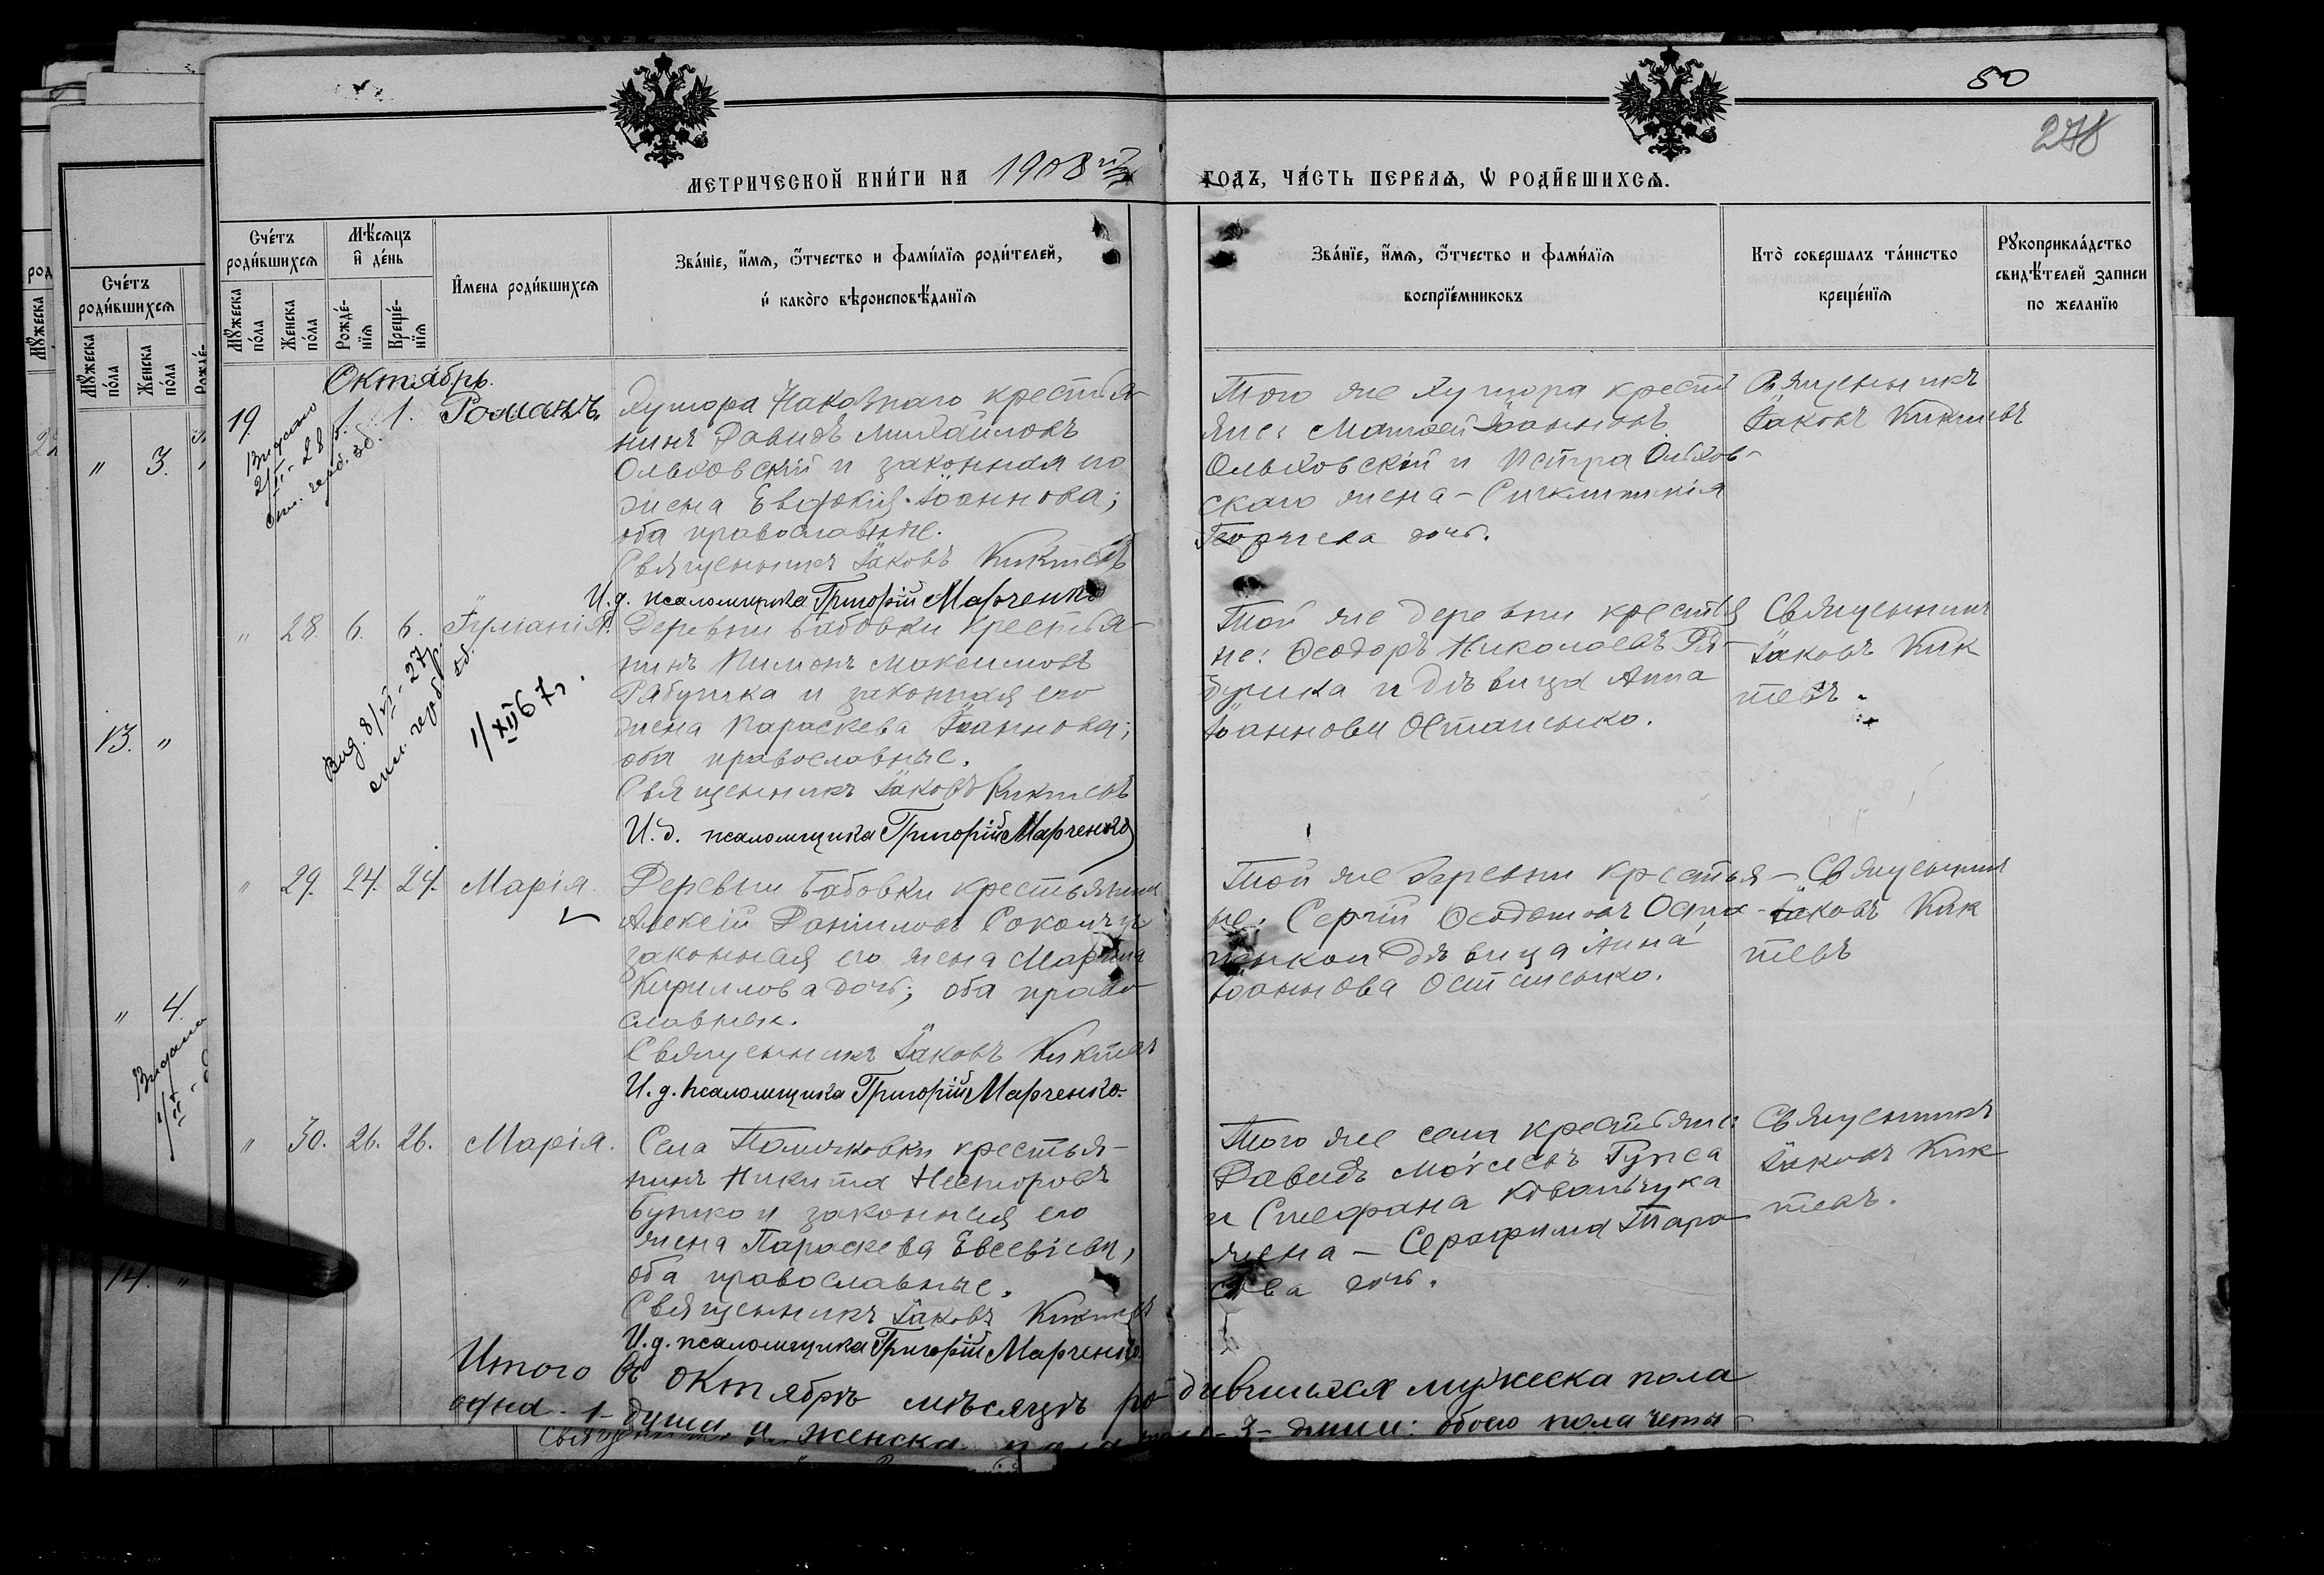 50
278
МЕТРИЧЕСКОЙ КНИ́ГИ НА 1908й ГОДЪ, ЧА́СТЬ ПЕРВАѦ, Ѡ РОДИ́ВШИХСѦ.
Сче́тъ роди́вшихсѧ
Мѣ́сѧцъ и҆ де́нь
И҆мена роди́вшихсѧ
Зва́нїе, и҆́мѧ, ѻ҆́тчество и фами́лїѧ роди́телей,
и҆ како́гѡ вѣроисповѣ́данїѧ
Зва́нїе, и҆́мѧ, ѻ҆́тчество и фами́лїѧ
воспрїе́мниковъ
Кто̀ совершалъ та́инство
креще́нїѧ
Рꙋкоприкла́дство
свидѣ́телей записи
по жела́нїю
Мꙋ́жеска по́ла
Же́нска по́ла
Рожде́-нїѧ
Креще́-нїѧ
Октябрь.
19. 1. 1. Романъ.
Хутора Наковнаго крестья-
нинъ Давидъ Михайловъ
Ольховскій и законная его
жена Евдокія Іоаннова;
оба православные.
Священникъ Іаковъ Киктевъ
И.д. псаломщика Григорій Марченко
Того же хутора крестья
не: Матѳей Іоанновъ
Ольховскій и Петра Ольхов-
скаго жена - Синклитикія
Георгіева дочь.
Священникъ
Іаковъ Киктевъ
" 28. 6. 6. Іуліанія.
Вид. 8/VI - 27
1/XII 67 г.
Деревни Бабовки крестья-
нинъ Пименъ Максимовъ
Рябушка и законная его
жена Параскева Іоаннова;
оба православные.
Священникъ Іаковъ Киктевъ
И.д. псаломщика Григорій Марченко
Той же деревни крестья
не: Ѳеодоръ Николаевъ Ря-
бушка и дѣвица Анна
Іоаннова Остапенко.
Священникъ
Іаковъ Кик
тевъ.
" 29. 24. 24. Марія.
Деревни Бабовки крестьянинъ
Алексій Даніиловъ Соколъ и
законная его жена Марѳа
Кириллова дочь; оба право-
славные.
Священникъ Іаковъ Киктевъ
И.д. псаломщика Григорій Марченко.
Той же деревни крестья-
не: Сергій Ѳеодотовъ Оста-
пенко и дѣвица Анна
Іоаннова Остапенко.
Священникъ
Іаковъ Кик
тевъ
" 30. 26. 26. Марія.
Села Полячковки крестья-
нинъ Никита Несторовъ
Бушко и законная его
жена Параскева Евсевіева,
оба православные.
Священникъ Іаковъ Киктевъ
И.д. псаломщика Григорій Марченко.
Того же села крестьяне:
Давидъ Моѵсеевъ Гупса
и Стефана Ковальчука
жена - Серафима Тара
сова дочь.
Священникъ
Іаковъ Кик
тевъ.
Итого въ октябрѣ мѣсяцѣ родившихся мужеска пола
одна - 1 - душа, а женска пола - 3 - души: обоего пола четы-